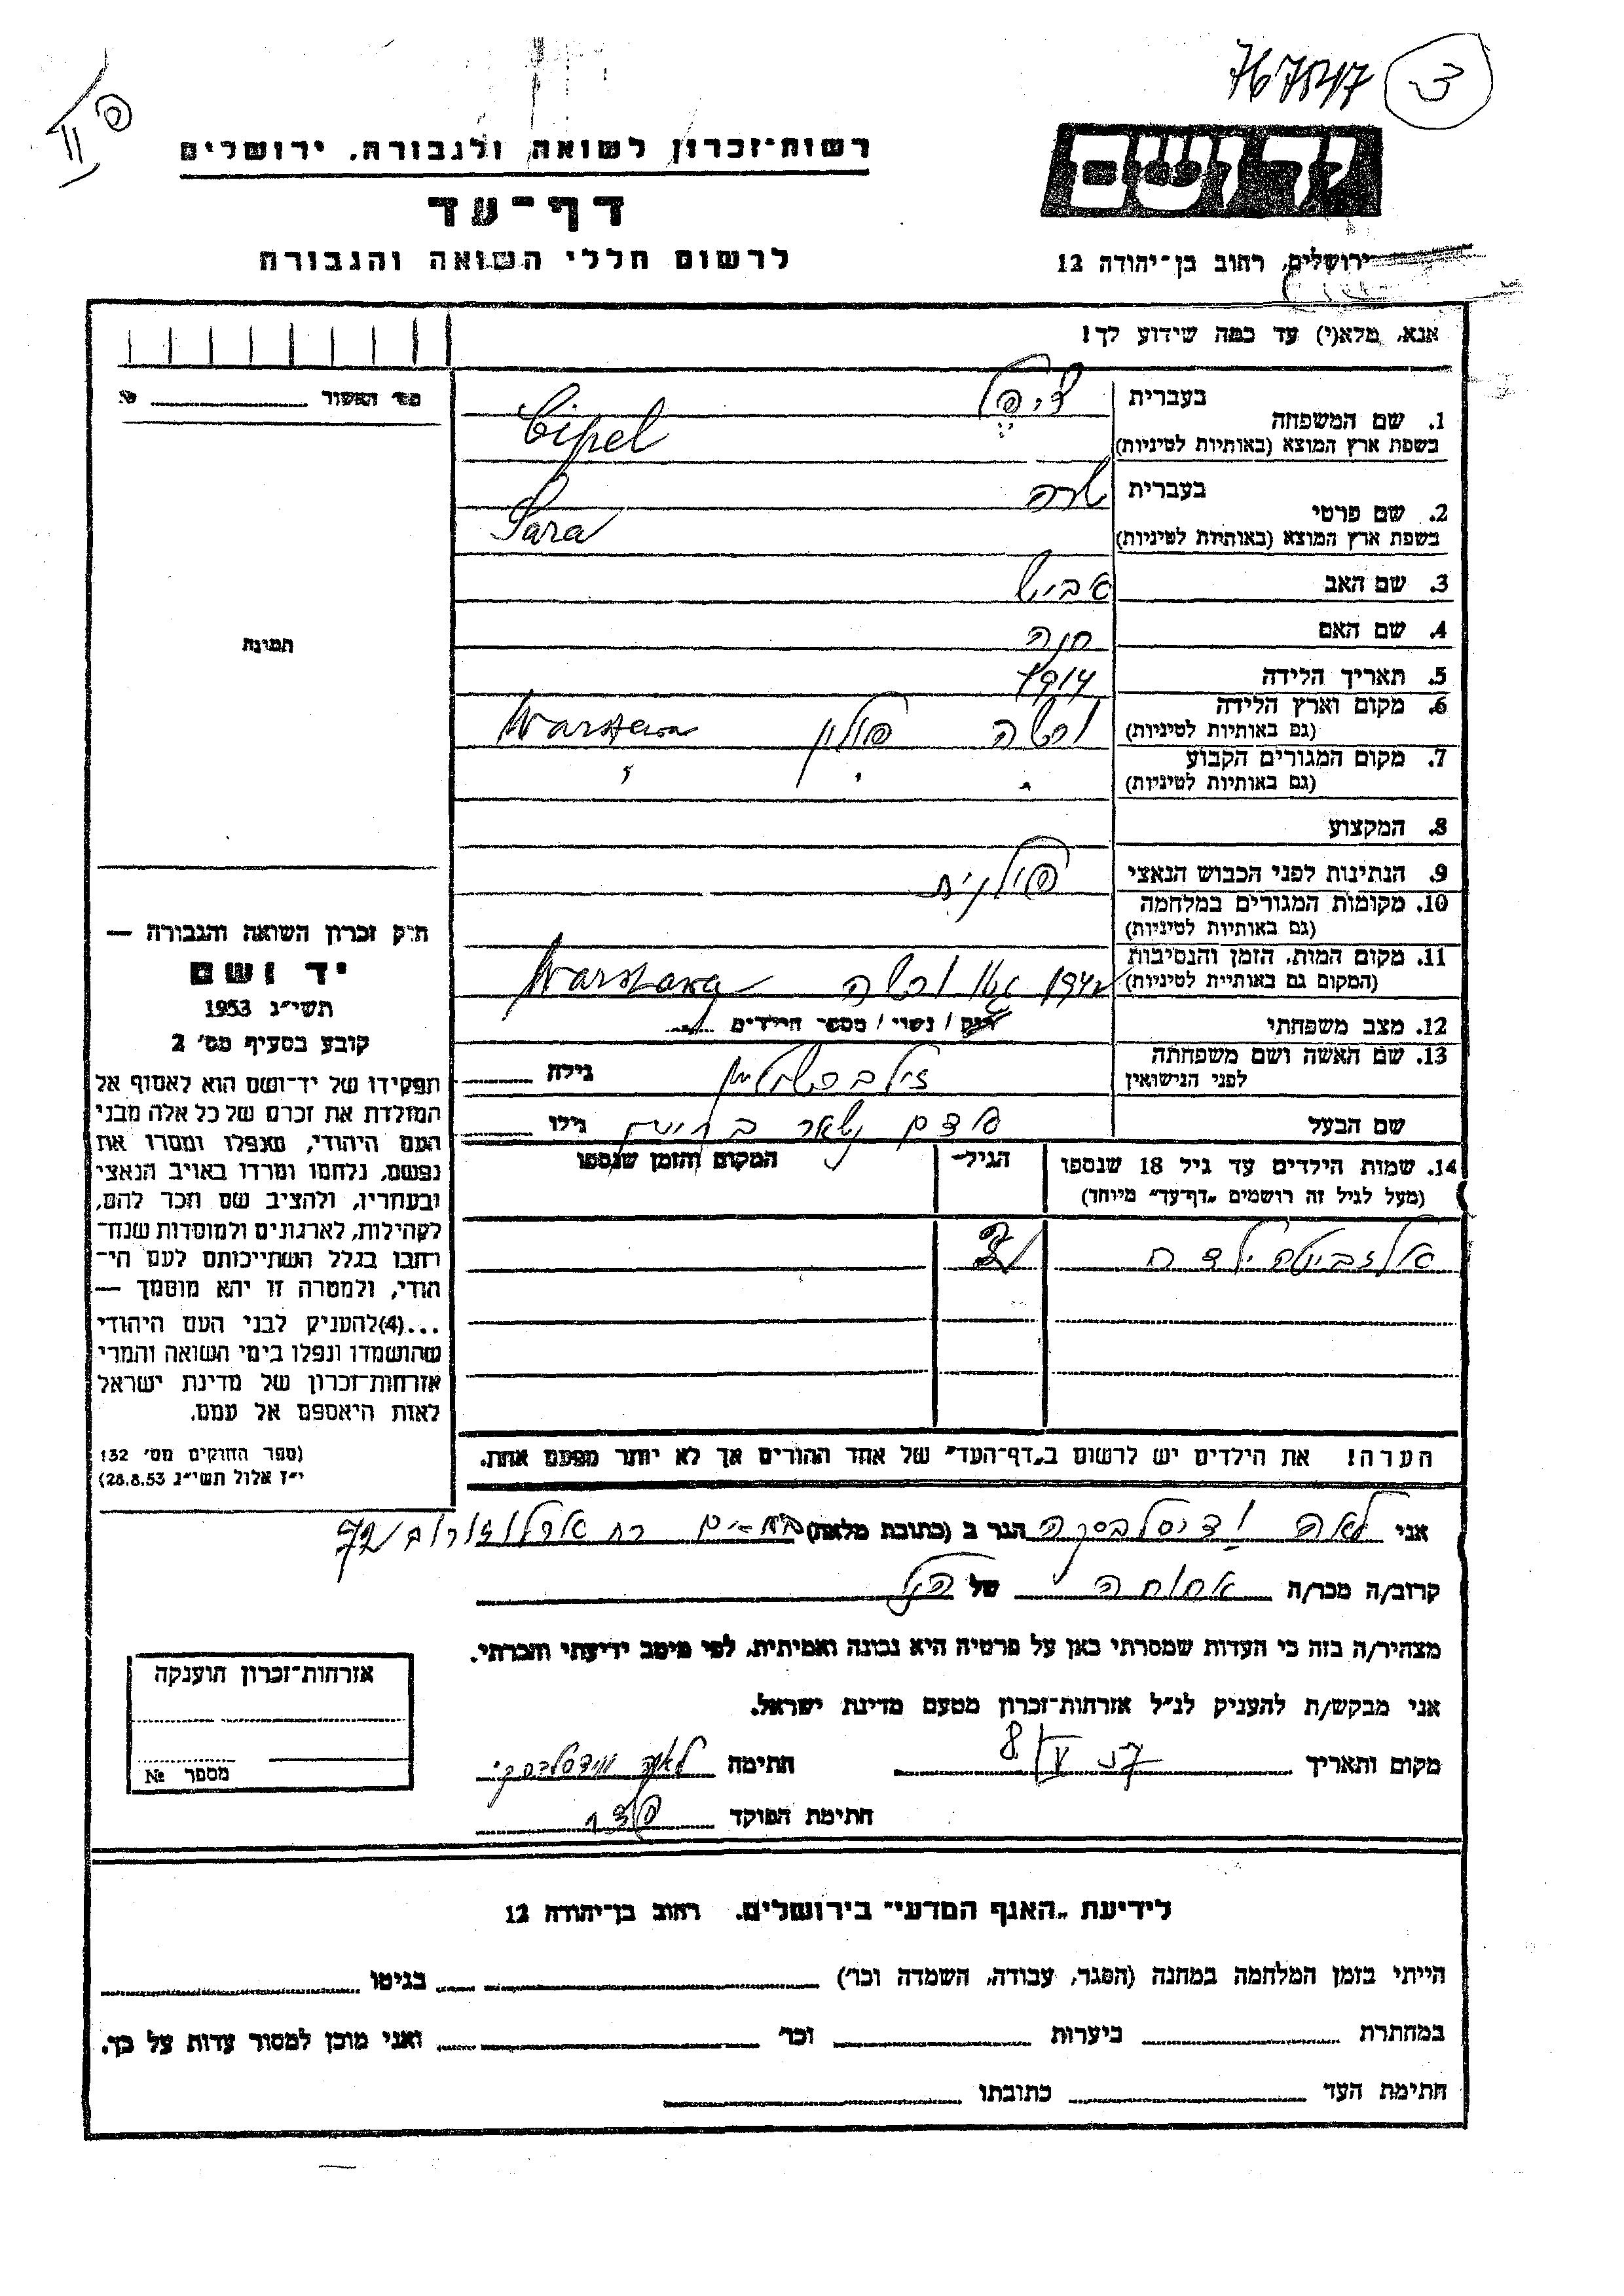 רשות־זכרון לשואה ולגבורה, ירושלים
דף־עד
לרשום חללי השואה והגבורה
ידושם
ירושלים, רחוב בן־יהודה 12
אנא, מלא(י) עד כמה שידוע לך!
מס' האשור №
תמונה
1. שם המשפחה
בעברית ציפל
בשפת ארץ המוצא (באותיות לטיניות) Cipel
2. שם פרטי
בעברית שרה
בשפת ארץ המוצא (באותיות לטיניות) Sara
3. שם האב
4. שם האם חנה
5. תאריך הלידה 1914
6. מקום וארץ הלידה ורשה פולין Warszawa
(גם באותיות לטיניות)
7. מקום המגורים הקבוע
(גם באותיות לטיניות)
8. המקצוע
9. הנתינות לפני הכבוש הנאצי פולנית
10. מקומות המגורים במלחמה
(גם באותיות לטיניות)
11. מקום המות, הזמן והנסיבות 1942 גטו ורשה Warszawa
(המקום גם באותיות לטיניות)
12. מצב משפחתי רוק / נשוי / מספר הילדים
13. שם האשה ושם משפחתה זילברשטיין גילה
לפני הנישואין
שם הבעל גילו
14. שמות הילדים עד גיל 18 שנספו הגיל המקום והזמן שנספו
(מעל לגיל זה רושמים „דף־עד״ מיוחד)
אלזביטה ילדה
הערה! את הילדים יש לרשום ב„דף־העד״ של אחד ההורים אך לא יותר מפעם אחת.
חק זכרון השואה והגבורה —
יד ושם
תשי״ג 1953
קובע בסעיף מס' 2
תפקידו של יד־ושם הוא לאסוף אל
המולדת את זכרם של כל אלה מבני
העם היהודי, שנפלו ומסרו את
נפשם, נלחמו ומרדו באויב הנאצי
ובעוזריו, ולהציב שם וזכר להם,
לקהילות, לארגונים ולמוסדות שנח־
רבו בגלל השתייכותם לעם הי־
הודי, ולמטרה זו יהא מוסמך —
...(4) להעניק לבני העם היהודי
שהושמדו ונפלו בימי השואה והמרי
אזרחות־זכרון של מדינת ישראל
לאות היאספם אל עמם.
(ספר החוקים מס' 132
י״ז אלול תשי״ג 28.8.53)
אני לאה וידיסלבסקה הגר ב (כתובת מלאה) בת־ים רח ארלוזורוב 72
קרוב/ה מכר/ה אחותה של הנ״ל
מצהיר/ה בזה כי העדות שמסרתי כאן על פרטיה היא נכונה ואמיתית, לפי מיטב ידיעתי והכרתי.
אני מבקש/ת להעניק לנ״ל אזרחות־זכרון מטעם מדינת ישראל.
מקום ותאריך 8/V 57 חתימה
חתימת הפוקד
אזרחות־זכרון הוענקה
מספר №
לידיעת „האגף המדעי״ בירושלים. רחוב בן־יהודה 12
הייתי בזמן המלחמה במחנה (הסגר, עבודה, השמדה וכו') בגיטו
במחתרת ביערות וכו' ואני מוכן למסור עדות על כך.
חתימת העד כתובתו